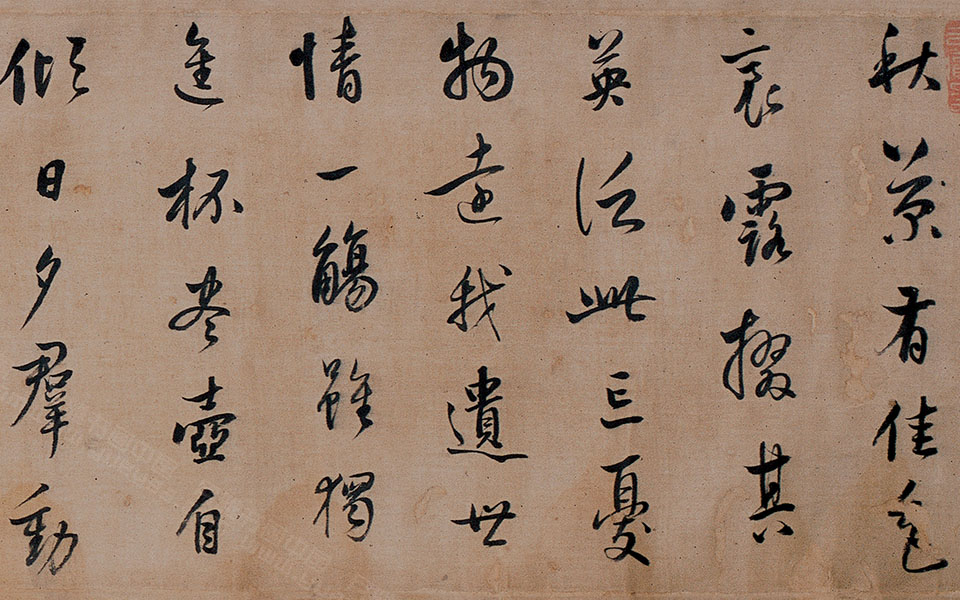 秋菊有佳色
裛露掇其
英泛此忘憂
物遠我遺世
情一觴雖獨
進杯尽壺自
傾日夕羣動